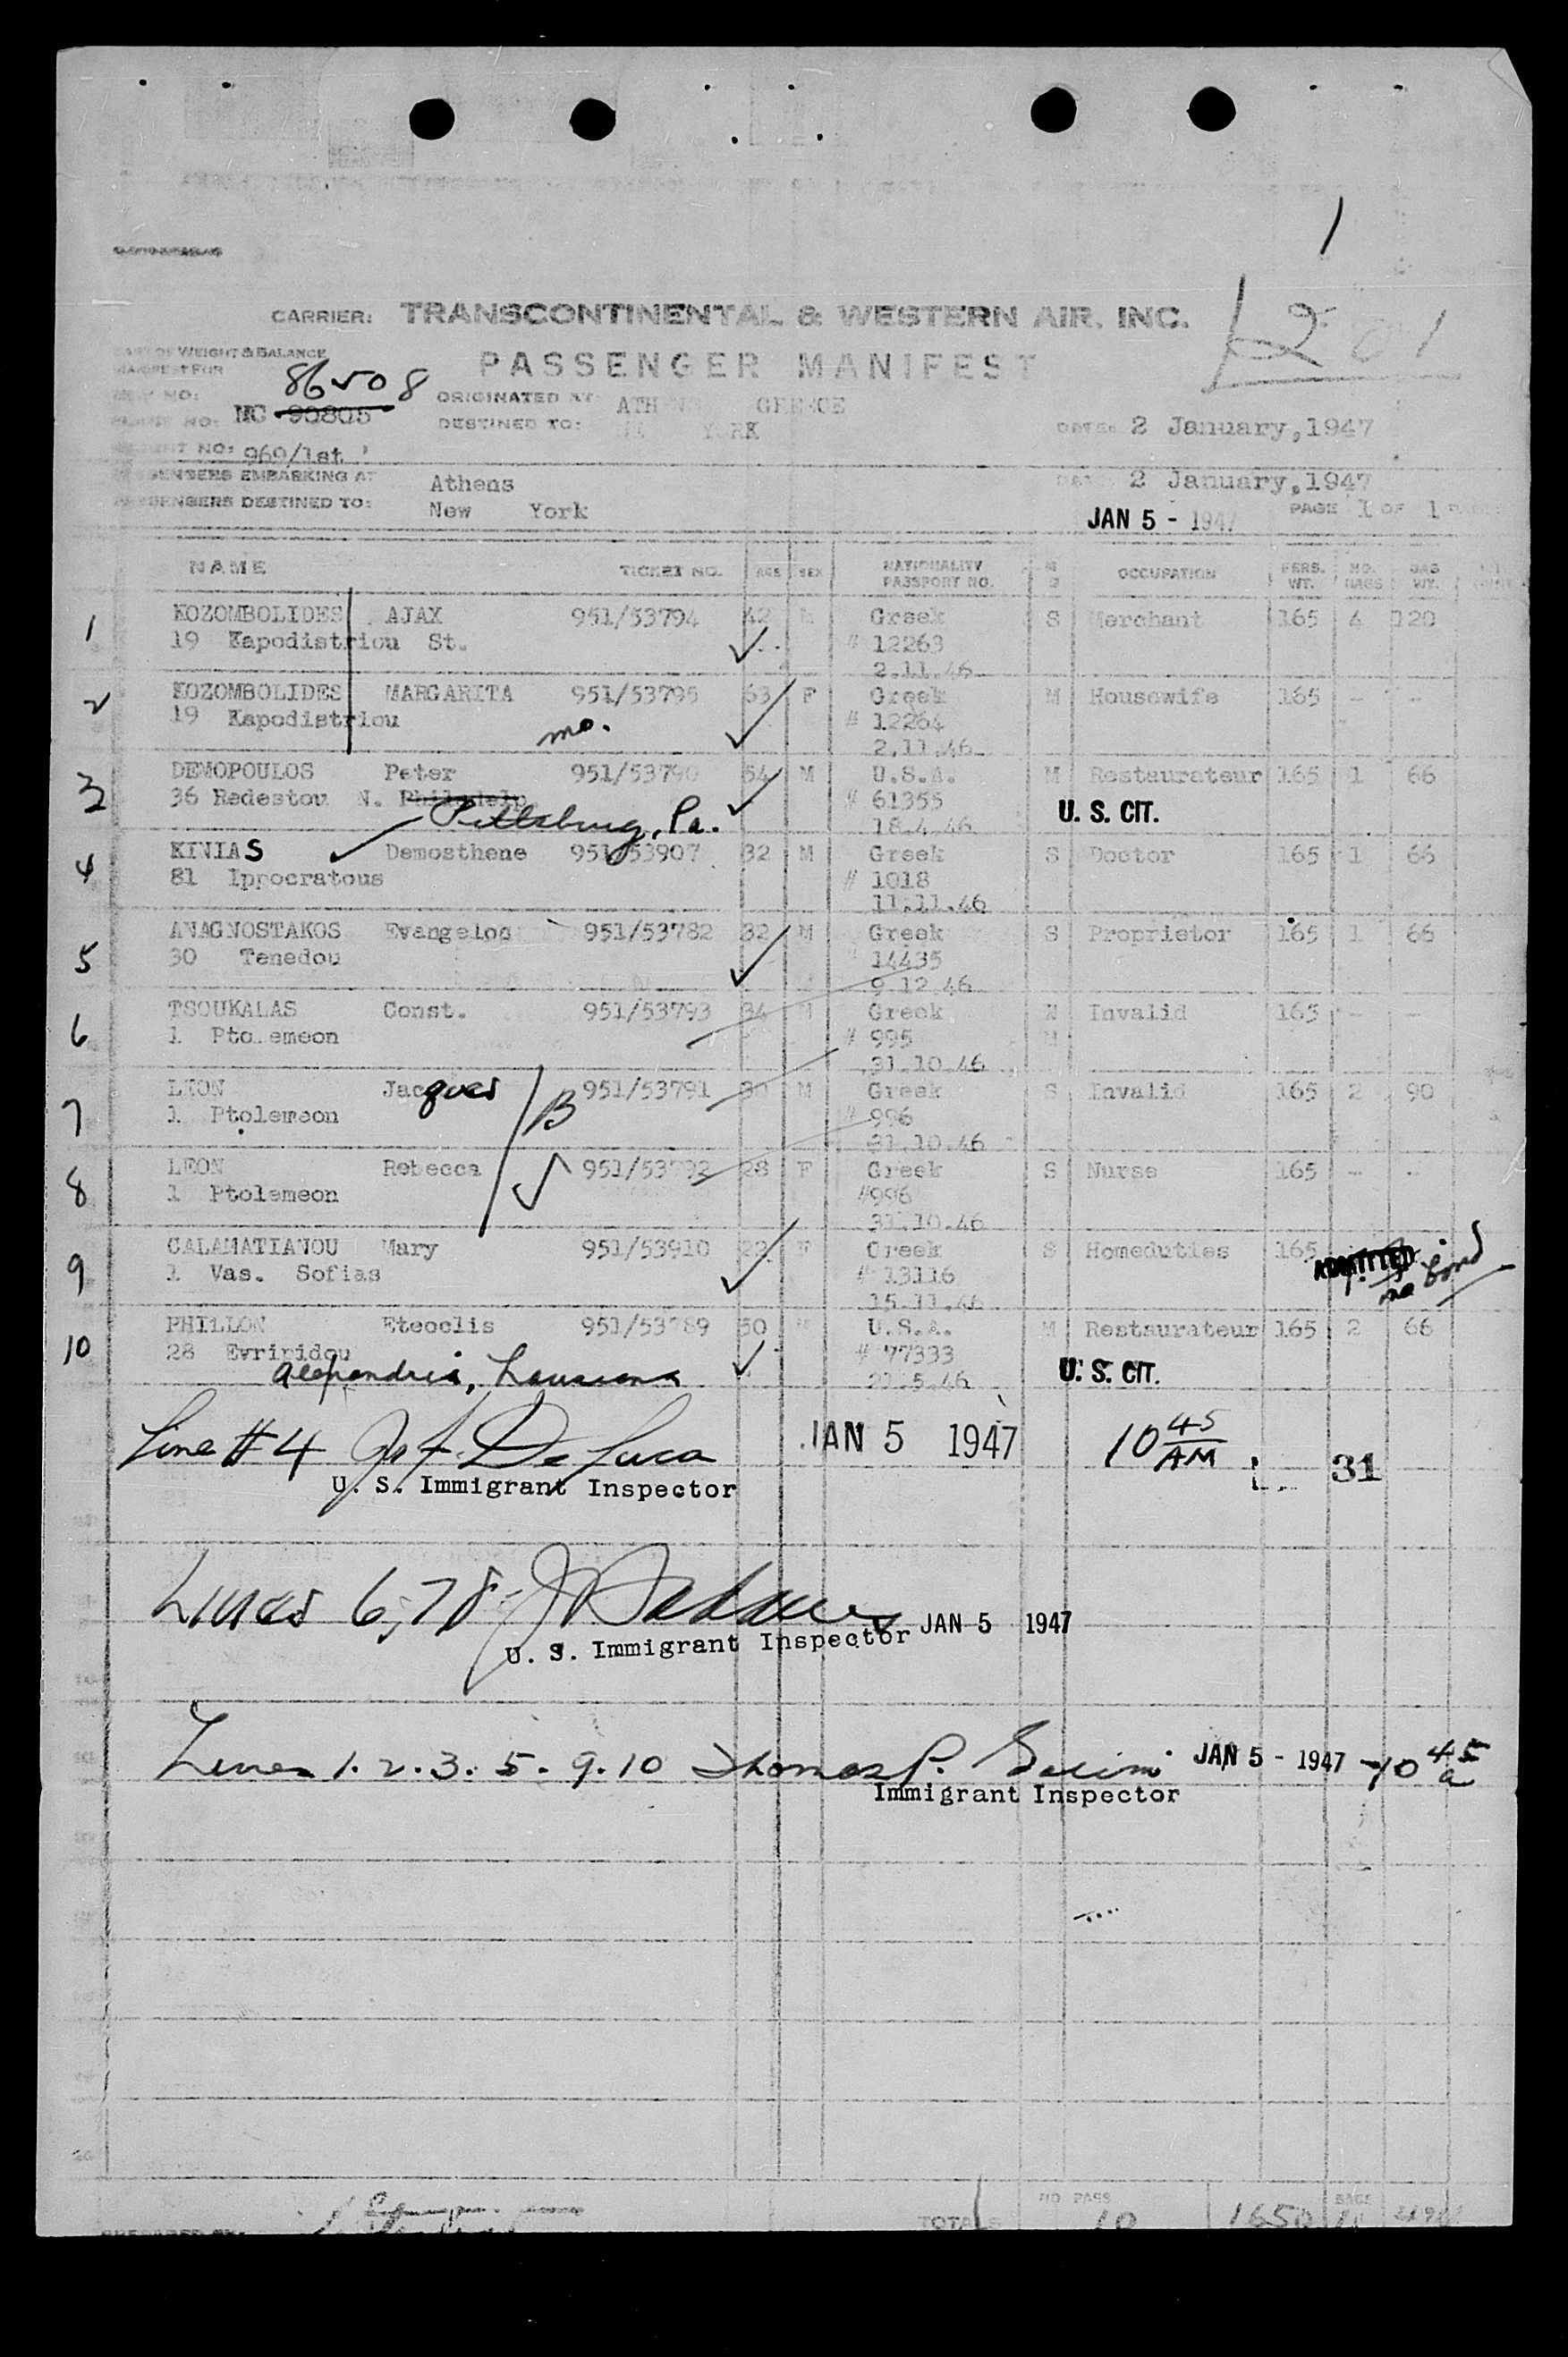 1
CARRIER: TRANSCONTINENTAL & WESTERN AIR. INC.
PART OF WEIGHT & BALANCE
MANIFEST FOR
PASSENGER MANIFEST
86508
NO: NC 90805
ORIGINATED AT: ATHENS GREECE
DESTINED TO: NEW YORK
DATE: 2 January, 1947
FLIGHT NO: 969/1st
PASSENGERS EMBARKING AT Athens
DATE: 2 January, 1947
PASSENGERS DESTINED TO: New York
JAN 5 - 1947
PAGE 1 OF 1 PAGES
NAME TICKET NO. AGE SEX NATIONALITY PASSPORT NO. M S OCCUPATION PERS. WT. NO. BAGS BAG WT.
1 KOZOMBOLIDES AJAX 951/53794 42 M Greek S Merchant 165 4 120
19 Kapodistriou St. # 12263
2.11.46
2 KOZOMBOLIDES MARGARITA 951/53795 63 F Greek M Housewife 165 - -
19 Kapodistriou # 12264
mo. 2.11.46
3 DEMOPOULOS Peter 951/53790 54 M U.S.A. M Restaurateur 165 1 66
36 Redestou N. Philadelp # 61355 U. S. CIT.
Pittsburg, Pa. 18.4.46
4 KINIAS Demosthene 951/53907 32 M Greek S Doctor 165 1 66
81 Ippocratous # 1018
11.11.46
5 ANAGNOSTAKOS Evangelos 951/53782 32 M Greek S Proprietor 165 1 66
30 Tenedou 14435
9.12.46
6 TSOUKALAS Const. 951/53793 34 M Greek Invalid 165 - -
1 Ptolemeon # 995 M
31.10.46
7 LEON Jacques 951/53791 30 M Greek S Invalid 165 2 90
1 Ptolemeon B # 996
31.10.46
8 LEON Rebecca 951/53792 28 F Greek S Nurse 165 - -
1 Ptolemeon #996
31.10.46
9 CALAMATIANOU Mary 951/53910 22 F Greek S Homeduties 165
1 Vas. Sofias # 13116 ADMITTED no bond
15.11.46
10 PHILLON Eteoclis 951/53789 50 M U.S.A. M Restaurateur 165 2 66
28 Evripidou # 77333 U. S. CIT.
Alexandria, Lousiana 21.5.46
Line # 4 Jas F. De Luca JAN 5 1947 10 45 AM 31
U. S. Immigrant Inspector
Lines 6, 7 8 JAN 5 1947
U. S. Immigrant Inspector
Lines 1. 2. 3. 5. 9. 10 Thomas P. JAN 5 - 1947 - 10 45 a
Immigrant Inspector
NO PASS BAGS
TOTALS 10 1650 11